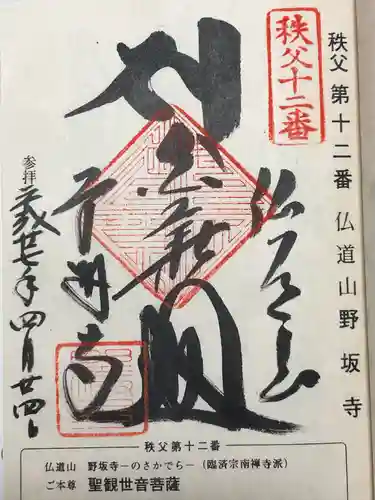 秩父 第十二番 仏道山野坂寺
秩父十二番
仏道山
野坂寺
参拝 平成廿七年四月廿四日
秩父第十二番
仏道山 野坂寺－のさかでら－(臨済宗南禅寺派)
ご本尊 聖観世音菩薩